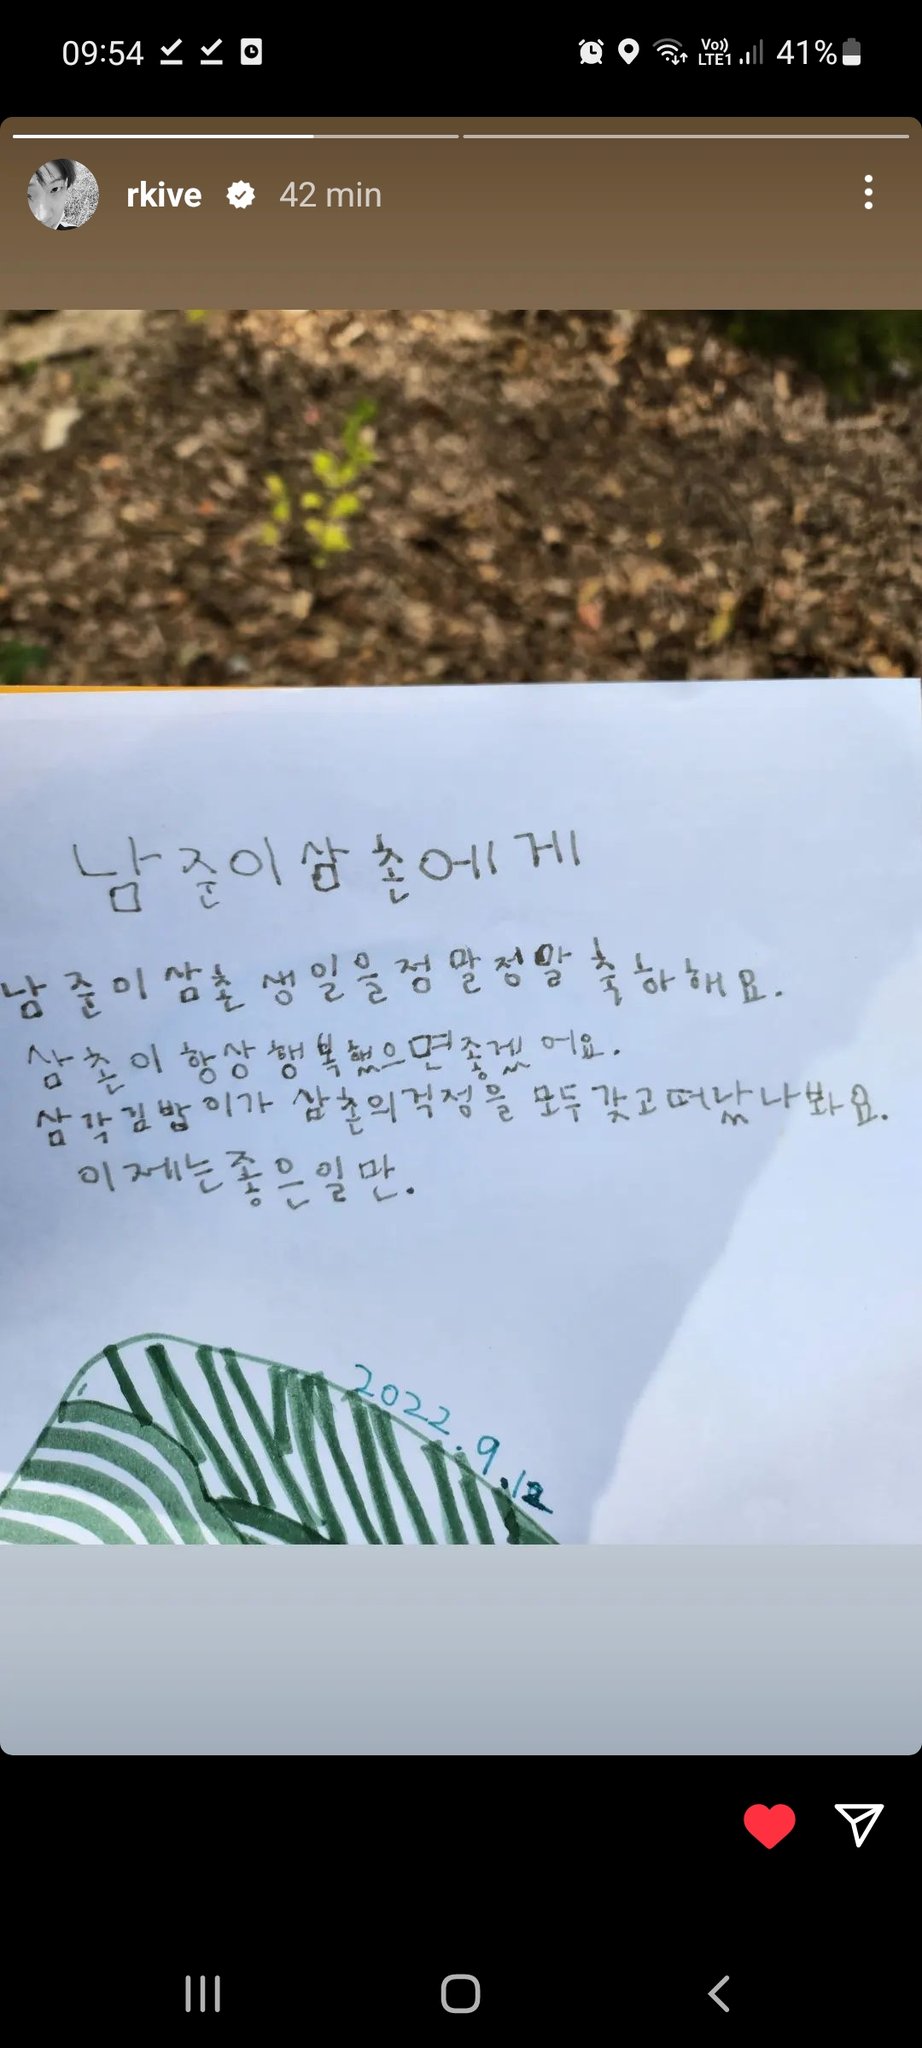 09:54
Vo)) LTE1 41%
rkive 42 min
남준이삼촌에게
남준이삼촌 생일을정말정말 축하해요.
삼촌이 항상 행복했으면좋겠어요.
삼각김밥이가 삼촌의걱정을 모두갖고떠났나봐요.
이제는좋은일만.
2022.9.12